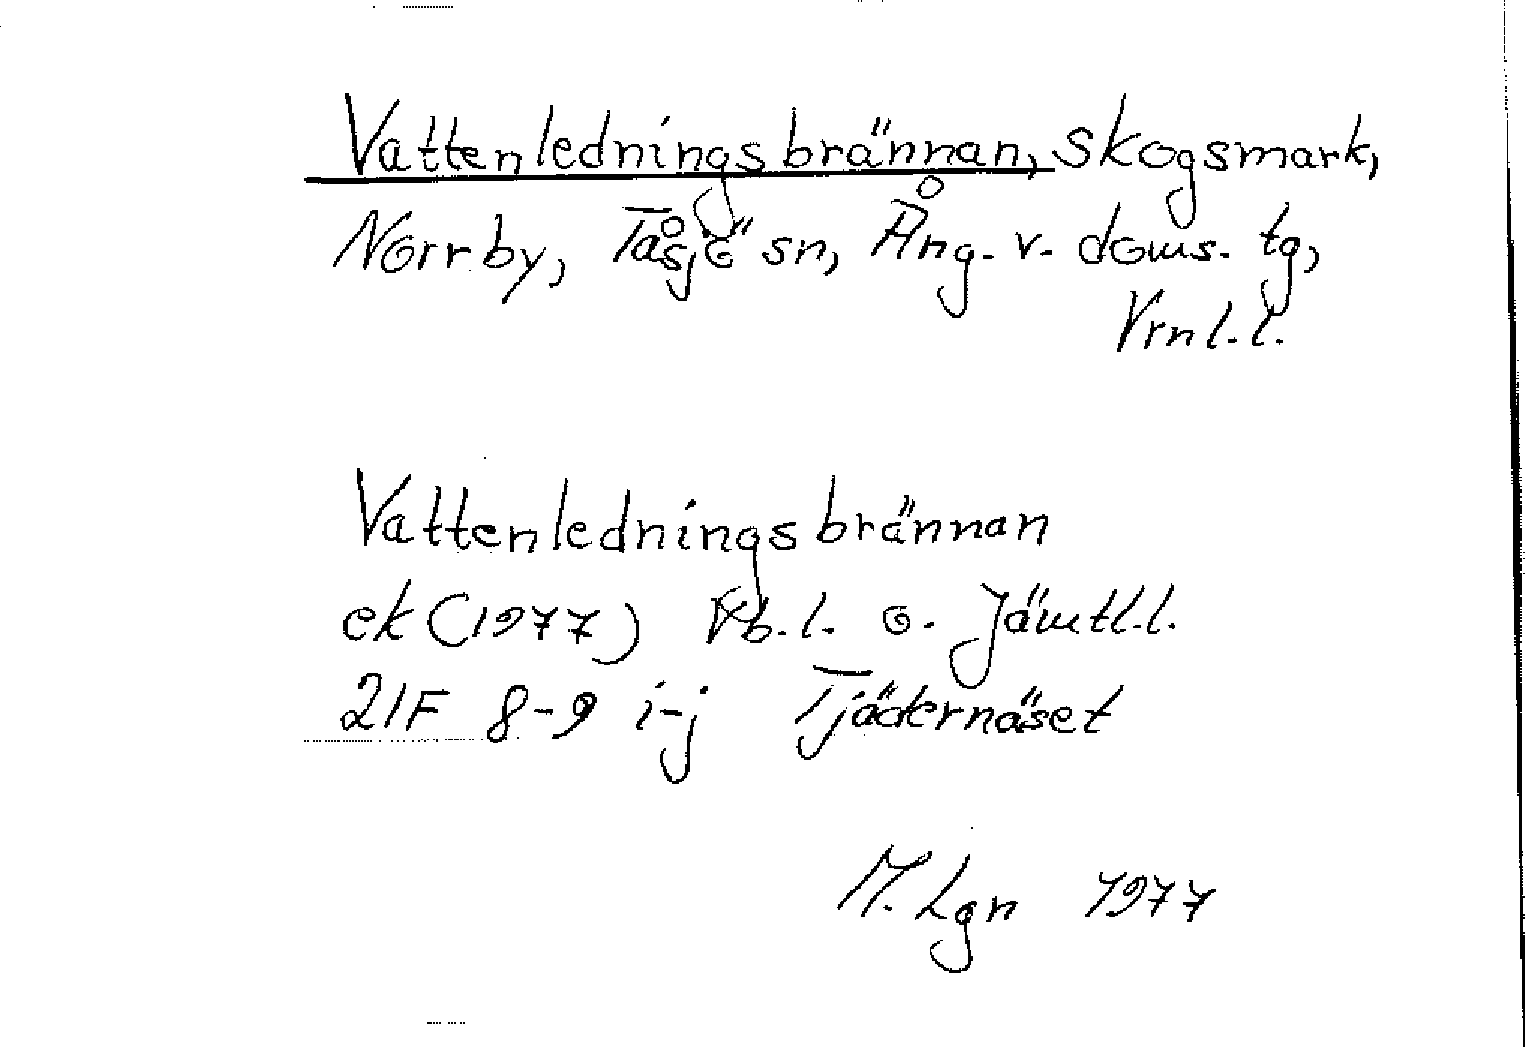 Vattenledningsbrännan, skogsmark,
Norrby, Tåsjö sn, Ång. v. doms. tg,
Vrnl.l.
Vattenledningsbrännan
ek (1977) Vb.l. o. Jämtl.l.
21F 8-9 i-j Tjädernäset
M. Lgn 1977